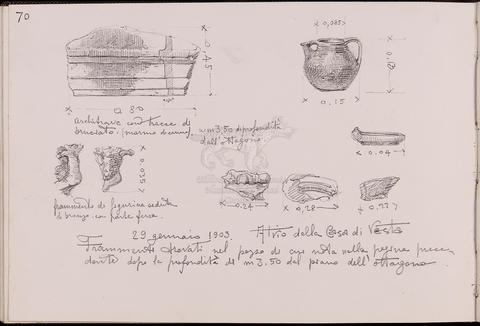 70
0,085
0,45
0,15
0.80
architrave con tracce di
bruciato. (marmo
a m 3.50 di profondità
dall'ottagono
0.04
0,055
frammento di figurina seduta
di bronzo. con parte ferro.
0.24
0,28
29 gennaio 1903. Atrio della Casa di Vesta
Frammenti trovati nel pozzo di cui nota nella pagina prece-
dente dopo la profondità di m 3.50 dal piano dell'ottagono